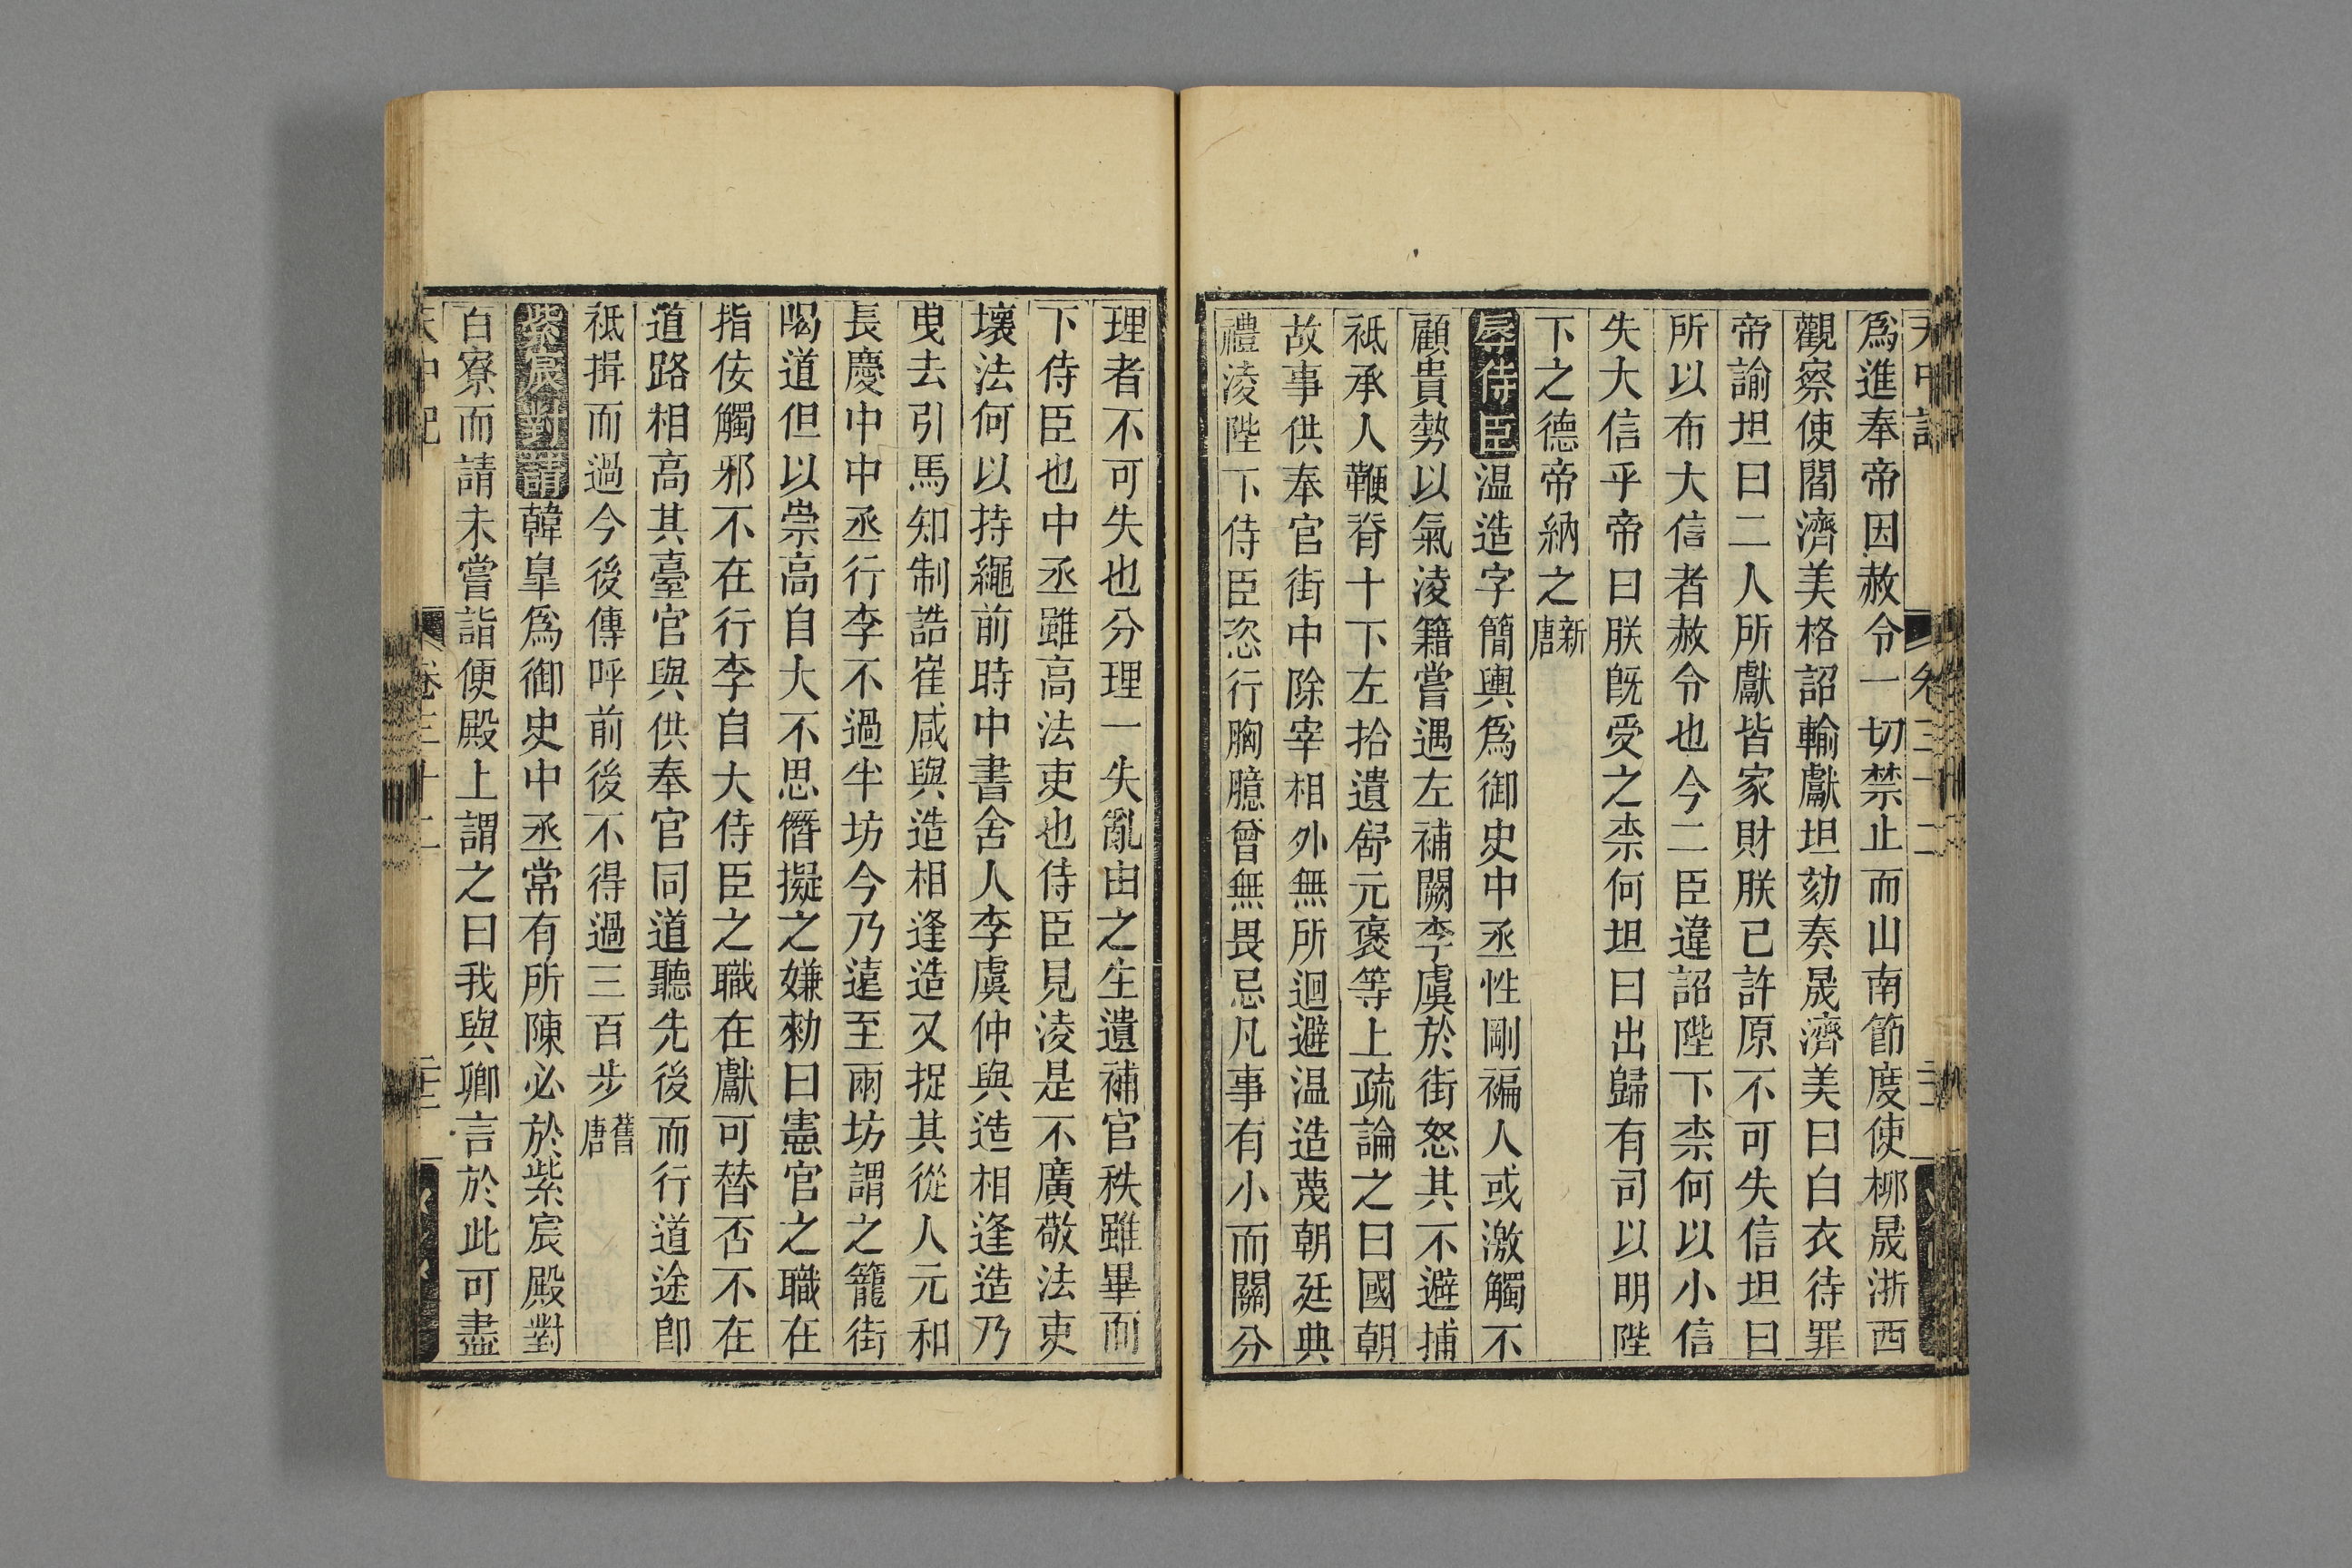 天中記 卷三十二
爲進奉帝因赦令一切禁止而山南節度使柳晟浙西
觀察使閻濟美格詔輸獻坦劾奏晟濟美曰白衣待罪
帝諭坦曰二人所獻皆家財朕已許原不可失信坦曰
所以布大信者赦令也今二臣違詔陛下柰何以小信
失大信乎帝曰朕旣受之柰何坦曰出歸有司以明陛
下之德帝納之新唐
辱侍臣温造字簡輿爲御史中丞性剛褊人或激觸不
顧貴勢以氣淩籍嘗遇左補闕李虞於街怒其不避捕
祗承人鞭脊十下左拾遺舒元褒等上疏論之曰國朝
故事供奉官街中除宰相外無所迴避温造蔑朝廷典
禮淩陛下侍臣恣行胸臆曾無畏忌凡事有小而關分
理者不可失也分理一失亂由之生遺補官秩雖畢而
下侍臣也中丞雖高法吏也侍臣見淩是不廣敬法吏
壞法何以持繩前時中書舍人李虞仲與造相逢造乃
曳去引馬知制誥崔咸與造相逢造又捉其從人元和
長慶中中丞行李不過半坊今乃遠至兩坊謂之籠街
喝道但以崇高自大不思僭擬之嫌勑曰憲官之職在
指佞觸邪不在行李自大侍臣之職在獻可替否不在
道路相高其臺官與供奉官同道聽先後而行道途卽
祗揖而過今後傳呼前後不得過三百步舊唐
紫宸對請韓臯爲御史中丞常有所陳必於紫宸殿對
百寮而請未嘗詣便殿上謂之曰我與卿言於此可盡
天中記 卷三十二